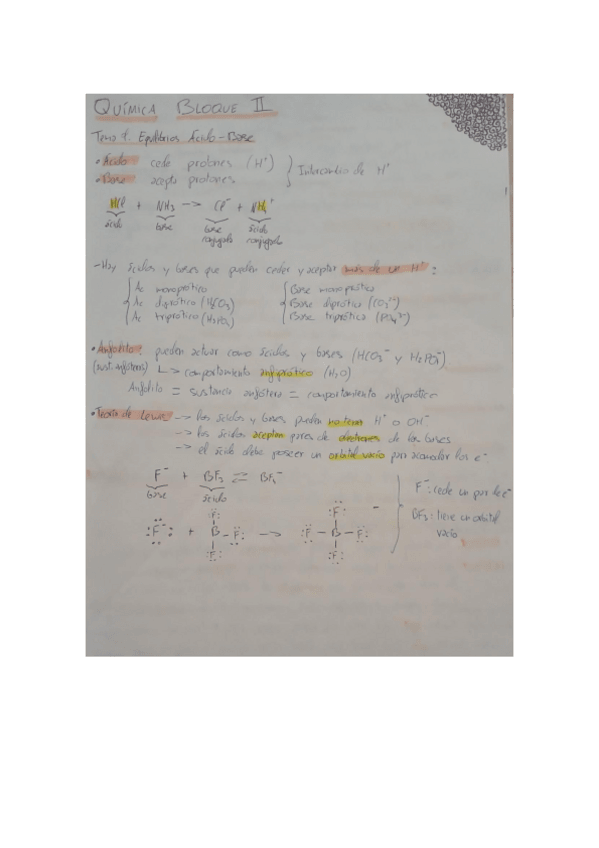 QUÍMICA BLOQUE II
Tema 7. Equilibrios Ácido-Base
• Ácido: cede protones (H⁺)
• Base: acepta protones
} Intercambio de H⁺
HCl + NH₃ -> Cl⁻ + NH₄⁺
ácido base base conjugada ácido conjugado
- Hay ácidos y bases que pueden ceder y aceptar más de un H⁺:
Ac monoprótico
Ac diprótico (H₂CO₃)
Ac triprótico (H₃PO₄)
Base monoprótica
Base diprótica (CO₃²⁻)
Base triprótica (PO₄³⁻)
• Anfolito: pueden actuar como ácidos y bases (HCO₃⁻ y H₂PO₄⁻)
(sust. anfóteras) L-> comportamiento anfiprótico (H₂O)
Anfolito = sustancia anfótera = comportamiento anfiprótico
• Teoría de Lewis -> los ácidos y bases pueden no tener H⁺ o OH⁻
-> los ácidos aceptan pares de electrones de las bases
-> el ácido debe poseer un orbital vacío para acomodar los e⁻
F⁻ + BF₃ ⇌ BF₄⁻
base ácido
F⁻ + F B F F -> F F B F F ⁻
F⁻: cede un par de e⁻
BF₃: tiene un orbital
vacío